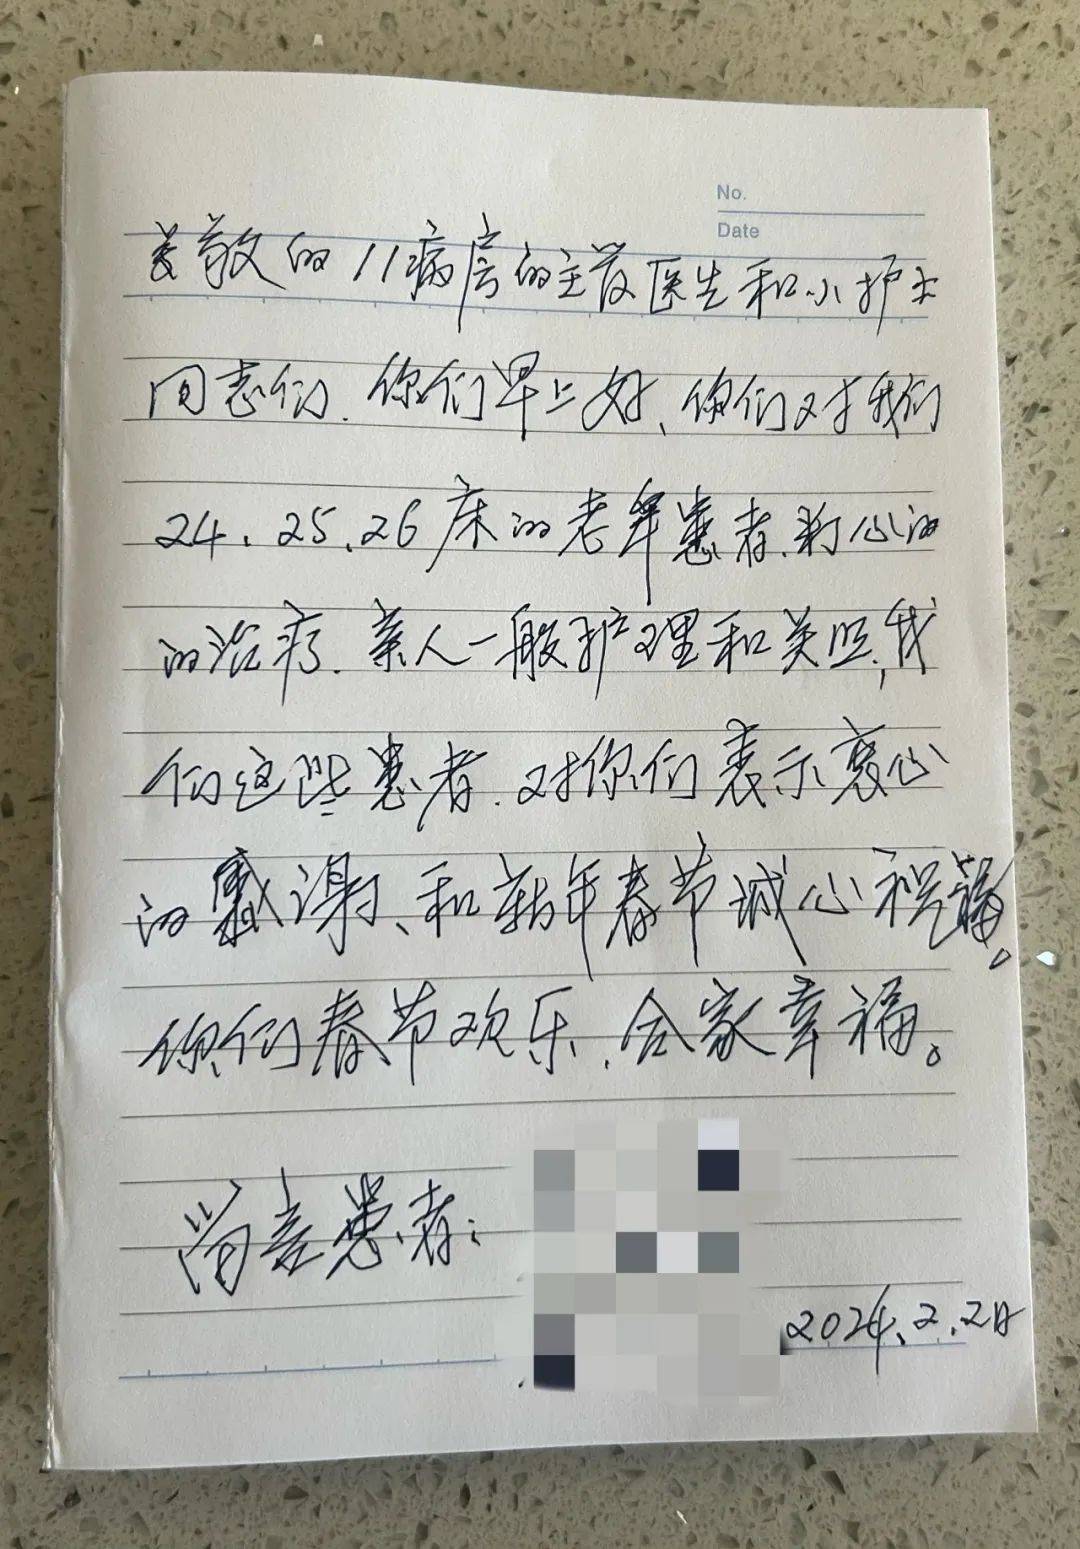 No.
Date
尊敬的11病房的主治医生和小护士
同志们、你们早上好、你们对我们
24、25、26床的老年患者、耐心的
的治疗、亲人一般护理和关照，我
们这些患者、对你们表示衷心
的感谢、和新年春节诚心祝福。
你们春节欢乐、合家幸福。
留言患者：
2024.2.2日